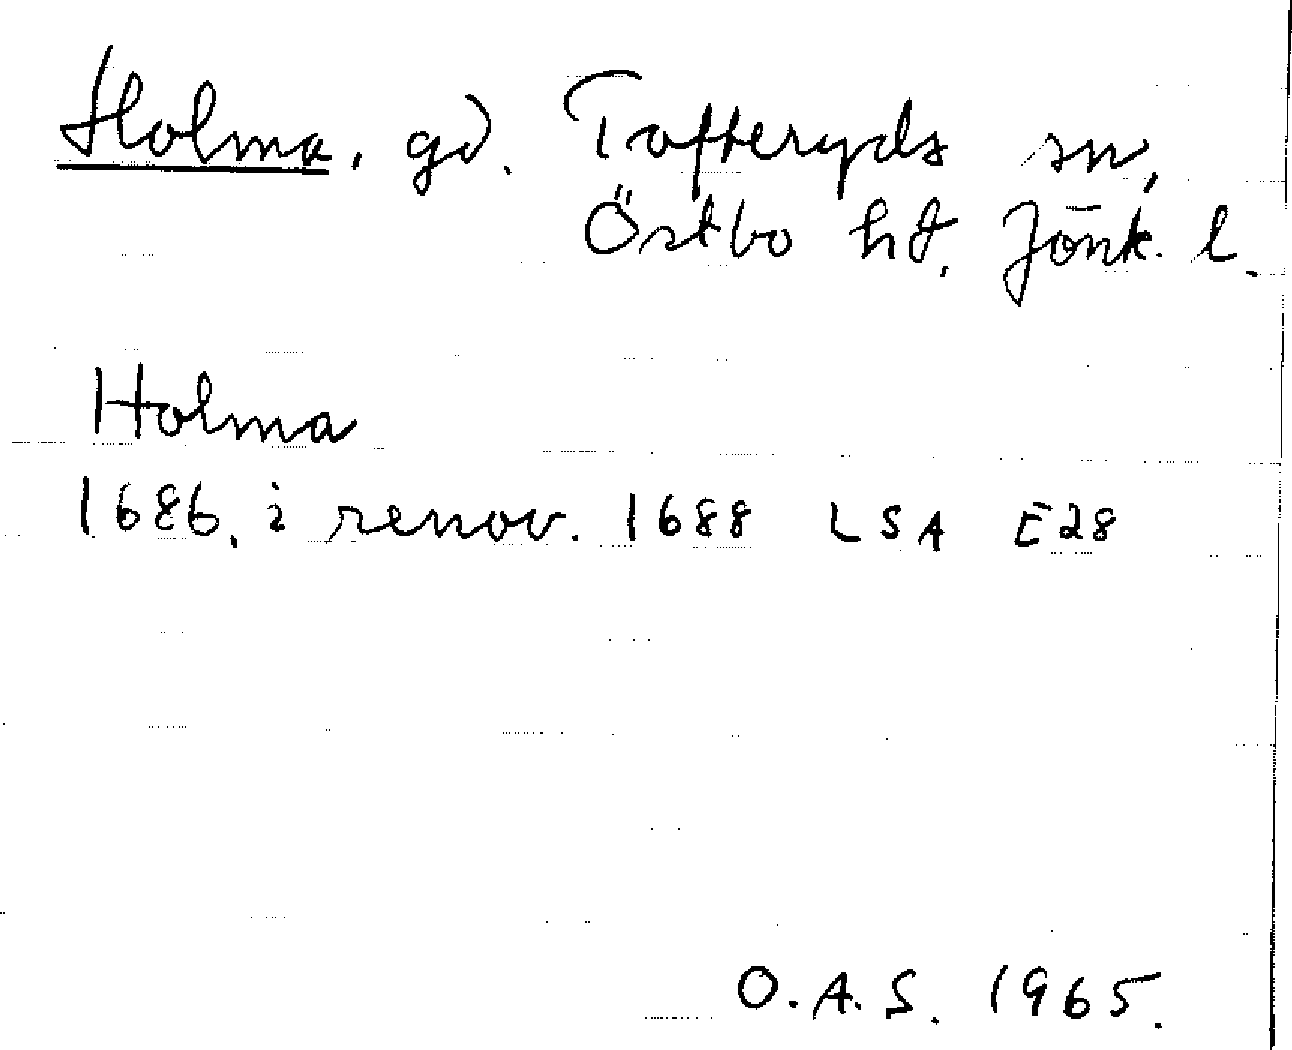 Holma, gd. Tofteryds sn,
Östbo hd, Jönk. l.
Holma
1686, i renov. 1688 LSA E28
O.A.S. 1965.